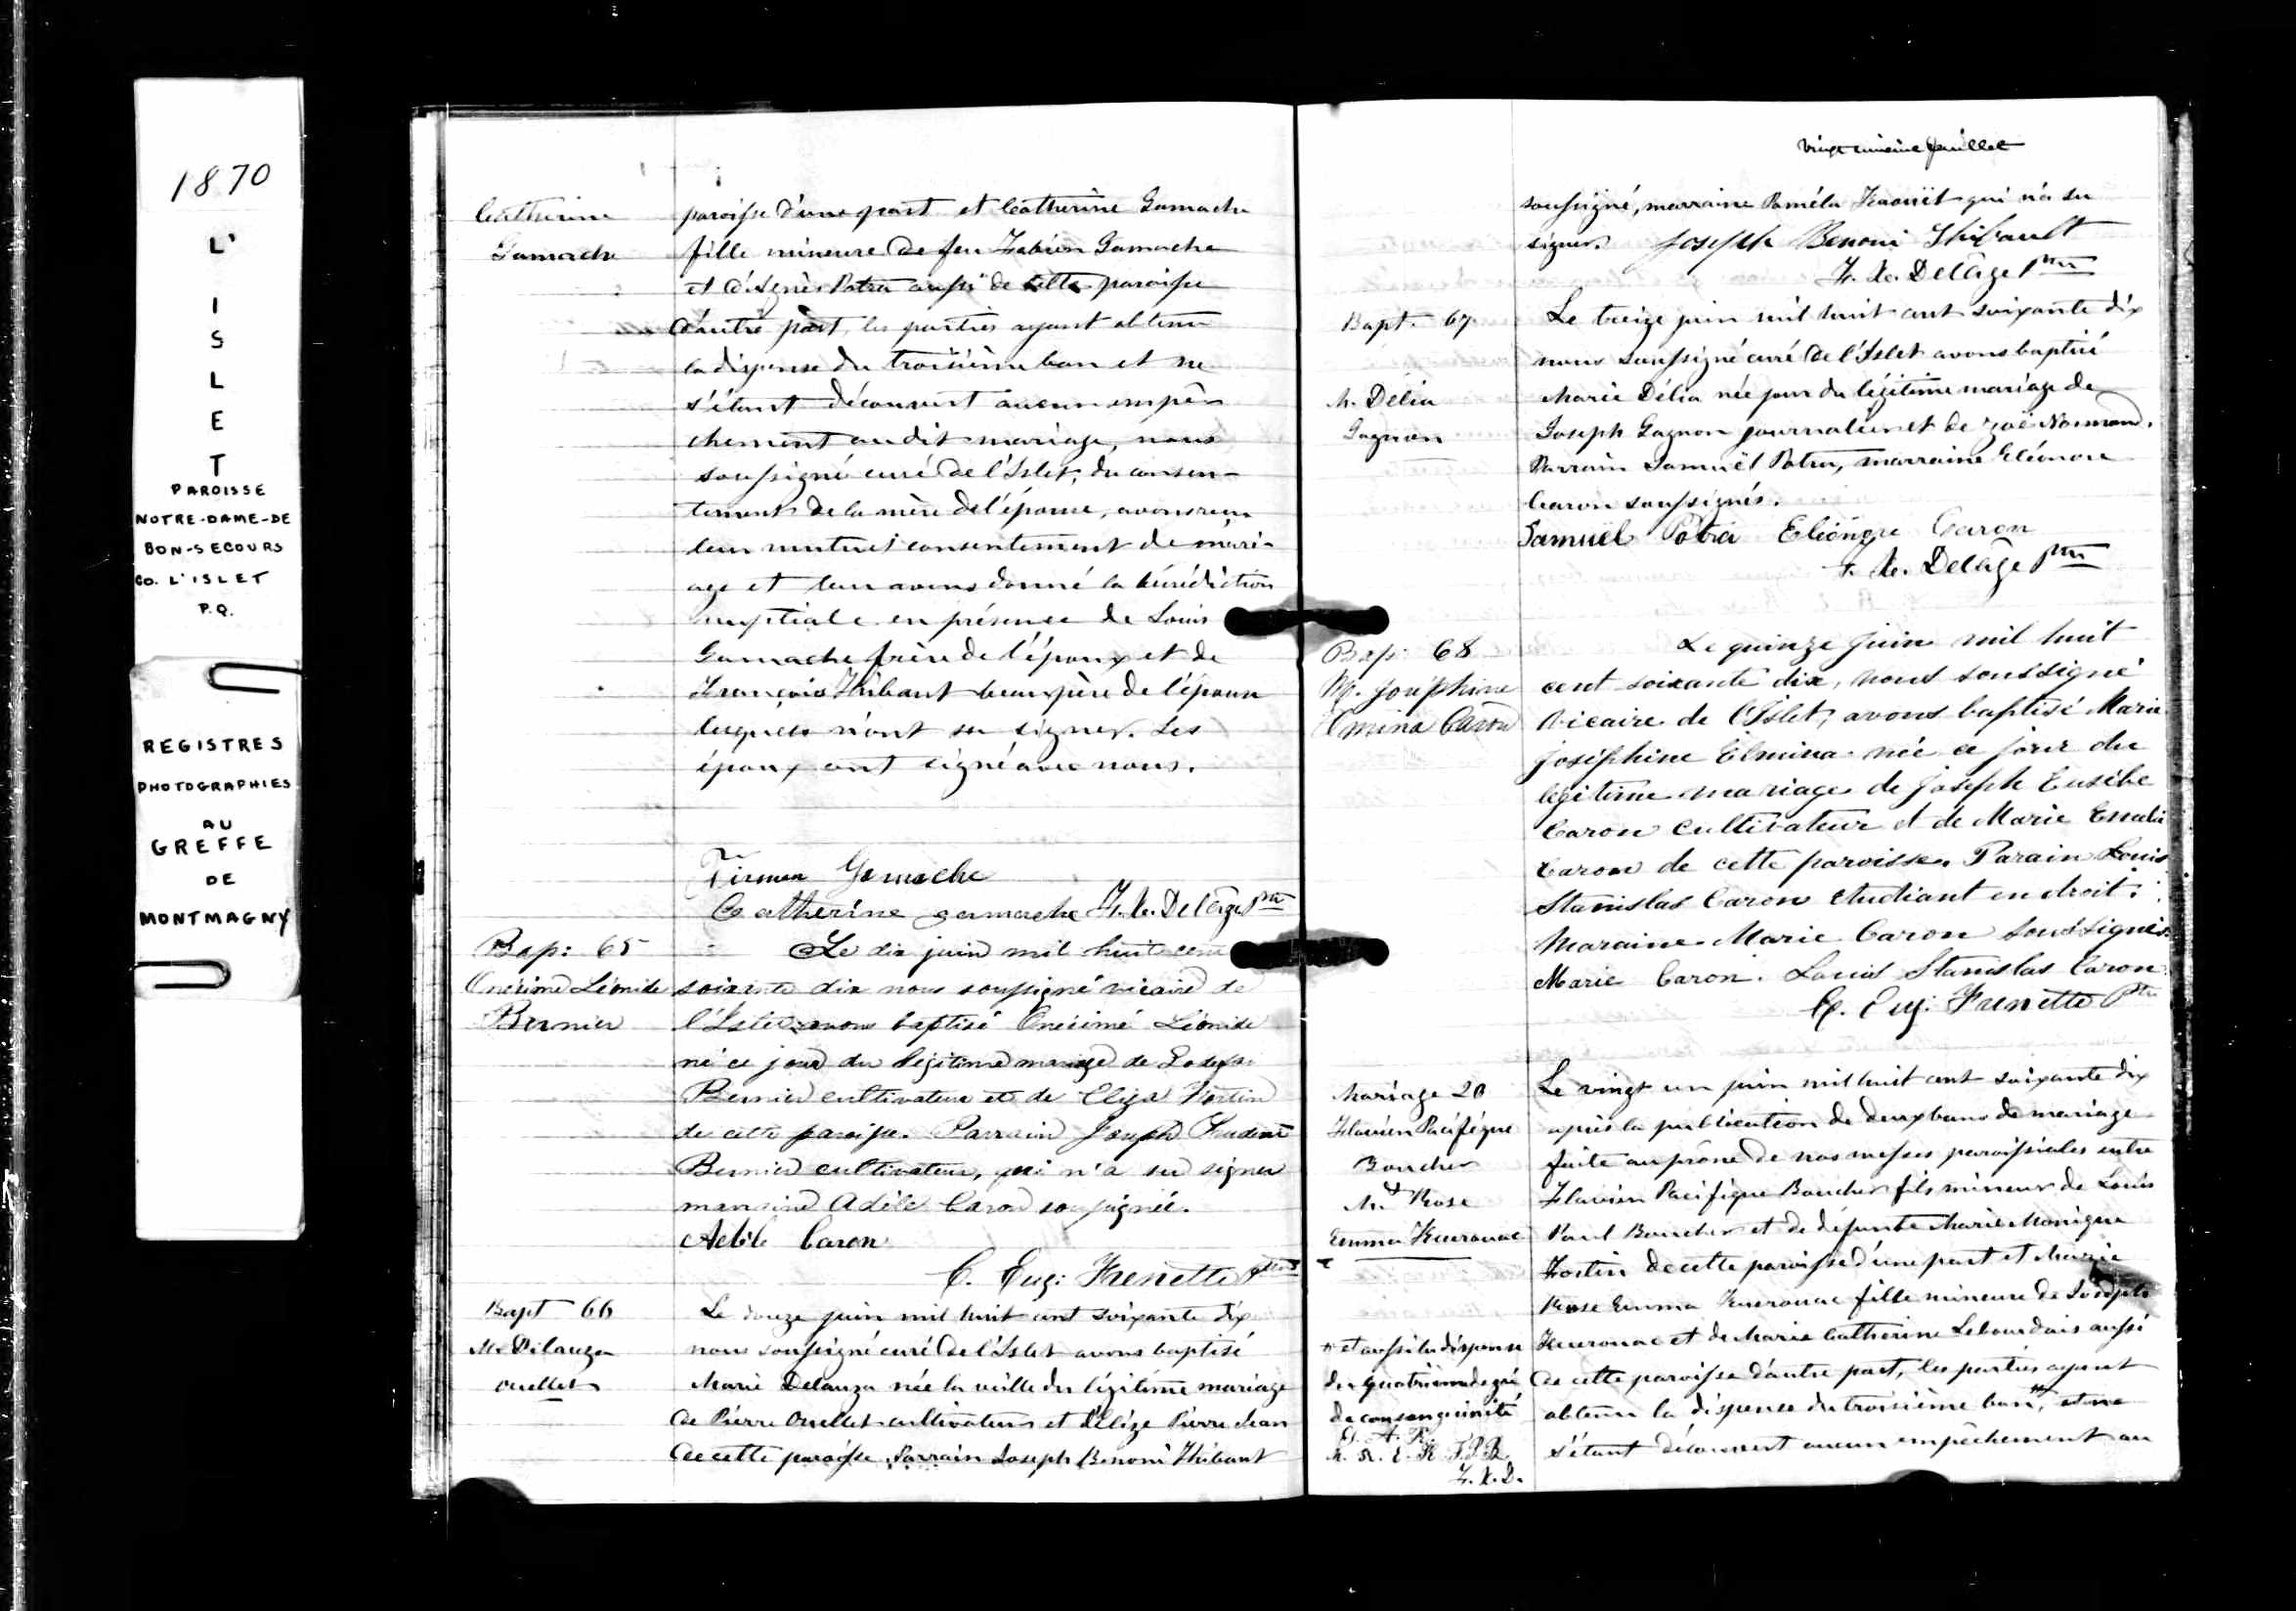 1870
L'
I
S
L
E
T
PAROISSE
NOTRE-DAME-DE
BON-SECOURS
CO. L'ISLET
P.Q.
REGISTRES
PHOTOGRAPHIES
AU
GREFFE
DE
MONTMAGNY
Catherine
Gamache
paroisse d'une part et Catherine Gamache
fille mineure de feu Fabien Gamache
et d'Agnès Potra aussi de cette paroisse
d'autre part, les parties ayant obtenu
la dispense du troisième ban et ne
s'étant découvert aucun empê-
chement au dit mariage, nous
soussigné curé de l'Islet, du consen-
tement de la mère de l'épouse, avons reçu
leur mutuel consentement de mari-
age et leur avons donné la bénédiction
nuptiale en présence de Louis
Gamache frère de l'époux et de
François Thibaut beaupère de l'épouse
lesquels n'ont su signer. Les
époux ont signé avec nous.
Firmin Gamache
Catherine gamache F. X. Delâge Ptre
Bap: 65
Onésime Léonide
Bernier
Le dix juin mil huit cent
soixante dix nous soussigné vicaire de
l'Islet avons baptisé Onésime Léonide
né ce jour du légitime mariage de
Bernier cultivateur et de Eliza Fortin
de cette paroisse. Parrain Joseph Prudent
Bernier cultivateur, qui n'a su signer
marraine Adèle Caron soussignée.
Adèle Caron
C. Eug: Frenette Ptre
Bapt 66
M. Délauza
Ouellet
Le douze juin mil huit cent soixante dix
nous soussigné curé de l'Islet avons baptisé
Marie Delauza née la veille du légitime mariage
de Pierre Ouellet cultivateur et d'Elize Pierre Jean
de cette paroisse. Parrain Joseph Benoni Thibaut
vingt unième feuillet
soussigné, marraine Paméla qui n'a su
signer. Joseph Benoni Thibault
F. X. Delâge Ptre
Bapt. 67
M. Délia
Gagnon
Le treize juin mil huit cent soixante dix
nous soussigné curé de l'Islet avons baptisé
Marie Délia née jour du légitime mariage de
Joseph Gagnon journalier et de Zoé Normand.
Parrain Samuël Potra, marraine Eléonore
Caron soussignés.
Samuël Potra Eléonore Caron
F. X. Delâge Ptre
Bap: 68
M. Joséphine
Elmina Caron
Le quinze juin mil huit
cent soixante dix, nous soussigné
vicaire de l'Islet, avons baptisé Marie
Joséphine Elmina née ce jour du
légitime mariage de Joseph Eusèbe
Caron cultivateur et de Marie
Caron de cette paroisse. Parain Louis
Stanislas Caron étudiant en droit.
Maraine Marie Caron soussignés.
Marie Caron. Louis Stanislas Caron
C. Eug: Frenette Ptre
Mariage 20
Flavien Pacifique
Boucher
&
M. Rose
Emma Kuerouac
Le vingt un juin mil huit cent soixante dix
après la publication de deux bans de mariage
faite au prône de nos messes paroissiales entre
Flavien Pacifique Boucher fils mineur de Louis
Paul Boucher et de défunte Marie Monique
Fortin de cette paroisse d'une part et Marie
Rose Emma Kuerouac fille mineure de Joseph
Kuerouac et de Marie Catherine Lebourdais aussi
de cette paroisse d'autre part, les parties ayant
obtenu la dispense du troisième ban, * et ne
s'étant découvert aucun empêchement au
* et aussi la dispense
du quatrième degré
de consanguinité
M. R. E. K. F. P. B.
F. X. D.